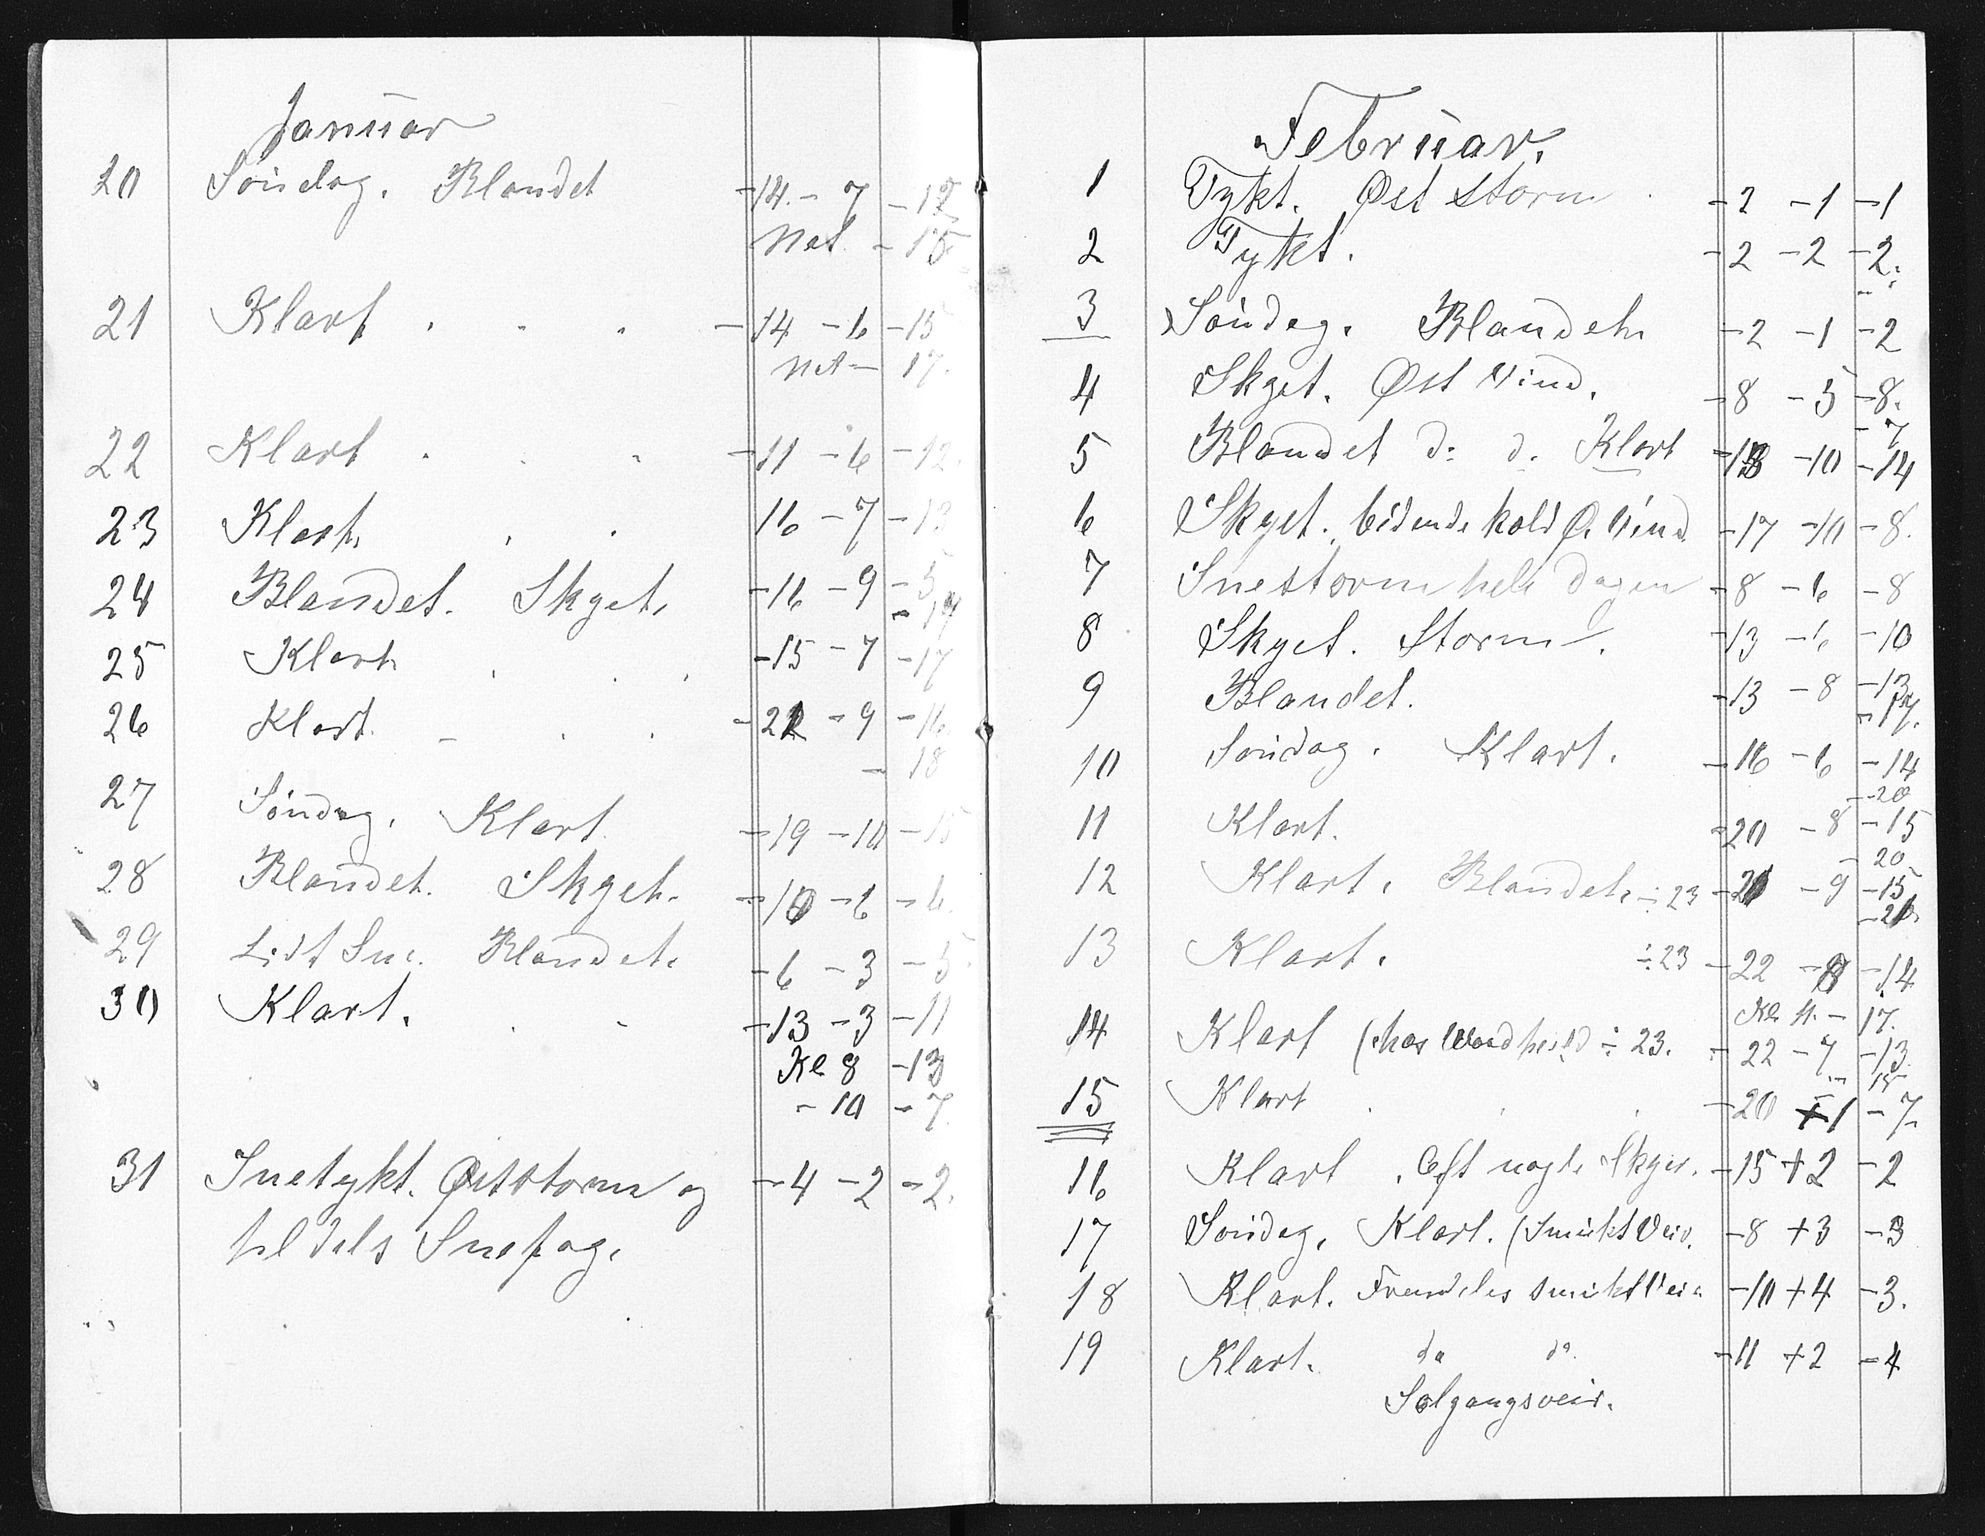 Januar
20 Søndag. Blandet -14 - 7 -12
Nat. - 15
21 Klart . . . -14 -6 -15
Nat - 17.
22 Klart . . . -11 -6 -12.
23 Klart. . . 16 -7 -13
24 Blandet. Skyet. -16 -9 -5
- 14
25 Klart . . . -15 -7 -17
26 Klart. - . . -22 -9 -16
- 18
27 Søndag. Klart -19 -10 -15
28 Blandet. Skyet. -10 -6 -6.
29 Lidt Sne. Blandet. -6 -3 -5
30 Klart. . - -13 -3 -11
Kl 8 -13
- 10 -7
31 Snetykt. Øststorm og -4 -2 -2.
til dels Snefog.
Februar.
1 Tykt. Øst storm -2 -1 -1
2 Tykt. -2 -2 -2.
3 Søndag. Blandet. -2 -1 -2
4 Skyet. Øst Vind. -8 -5 -8.
- 7
5 Blandet d: d. Klart -13 -10 -14
6 Skyet. bidende kold Ø. Vind. -17 -10 -8.
7 Snestorm hele dagen -8 -6 -8
8 Skyet. Storm. -13 -6 -10
9 Blandet. -13 -8 -13
- 17.
10 Søndag. Klart. -16 -6 -14
- 20
11 Klart. -20 -8 -15
- 20
12 Klart. Blandet. ÷ 23 -21 -9 -15
-21.
13 Klart. ÷ 23 -22 -8 -14
Kl. 11. - 17.
14 Klart (hos ÷ 23. -22 -7 -13.
- 15
15 Klart . . . -20 +1 -7
16 Klart . Eft nogle Skyer. -15 +2 -2
17 Søndag. Klart. (Smukt Veir. -8 +3 -3
18 Klart. Fremdeles smukt Veir -10 +4 -3.
19 Klart. do do. -11 +2 -4
Solgangsveir.